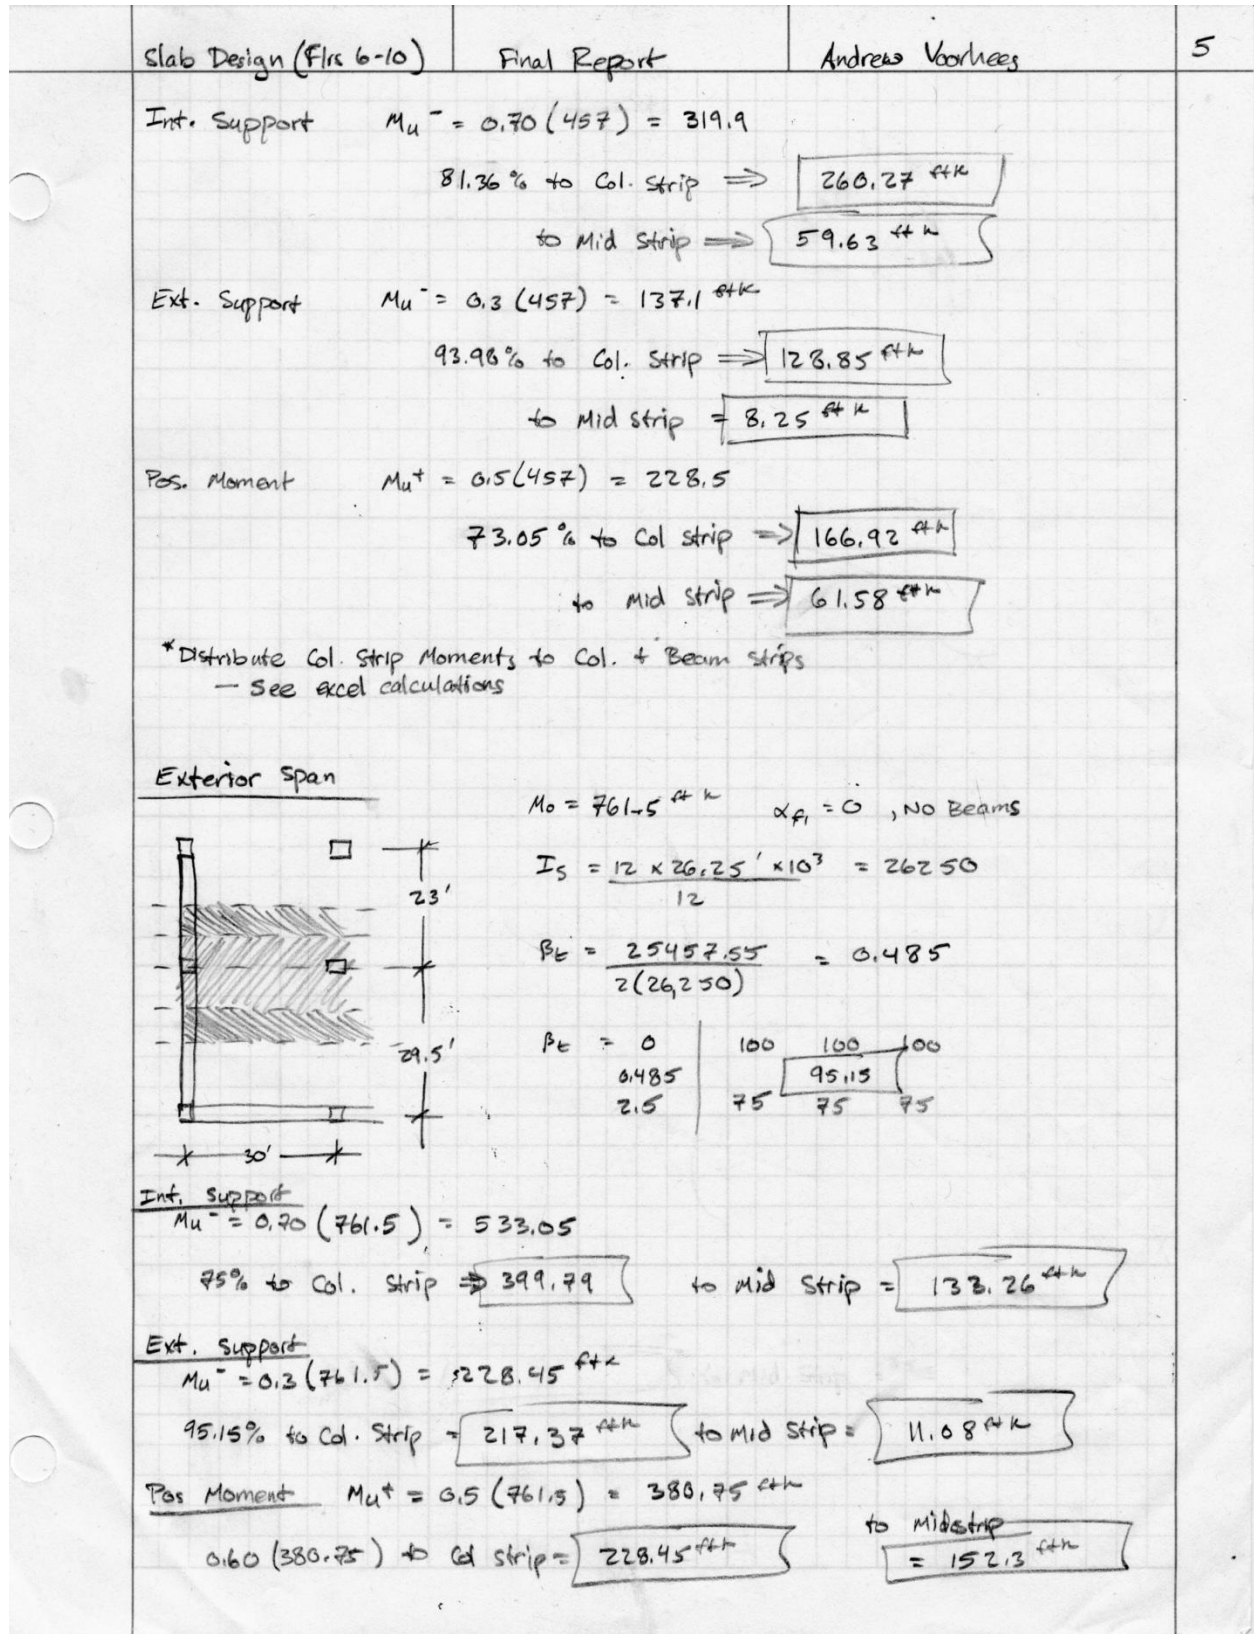 Slab Design (Flrs 6-10) Final Report Andrew Voorhees 5
Int. Support Mu⁻ = 0.70 (457) = 319.9
81.36 % to Col. Strip ⇒ 260.27 ftk
to Mid Strip ⇒ 59.63 ft k
Ext. Support Mu⁻ = 0.3 (457) = 137.1 ftk
93.98% to Col. Strip ⇒ 128.85 ftk
to Mid Strip = 8.25 ft k
Pos. Moment Mu⁺ = 0.5(457) = 228.5
73.05 % to Col Strip ⇒ 166.92 ftk
to Mid Strip ⇒ 61.58 ftk
*Distribute Col. Strip Moments to Col. + Beam Strips
— See excel calculations
Exterior Span
Mo = 761.5 ft k αf1 = 0 , No Beams
Is = 12 x 26.25' x 10³ / 12 = 26250
βt = 25457.55 / 2(26,250) = 0.485
βt = 0 100 100 100
0.485 95.15
2.5 75 75 75
23'
29.5'
30'
Int. Support
Mu⁻ = 0.70 (761.5) = 533.05
75% to Col. Strip ⇒ 399.79 to Mid Strip = 133.26 ftk
Ext. Support
Mu⁻ = 0.3 (761.5) = 228.45 ftk
95.15% to Col. Strip = 217.37 ftk to Mid Strip = 11.08 ftk
Pos Moment Mu⁺ = 0.5 (761.5) = 380.75 ftk
0.60 (380.75) to Col Strip = 228.45 ftk to Midstrip
= 152.3 ftk